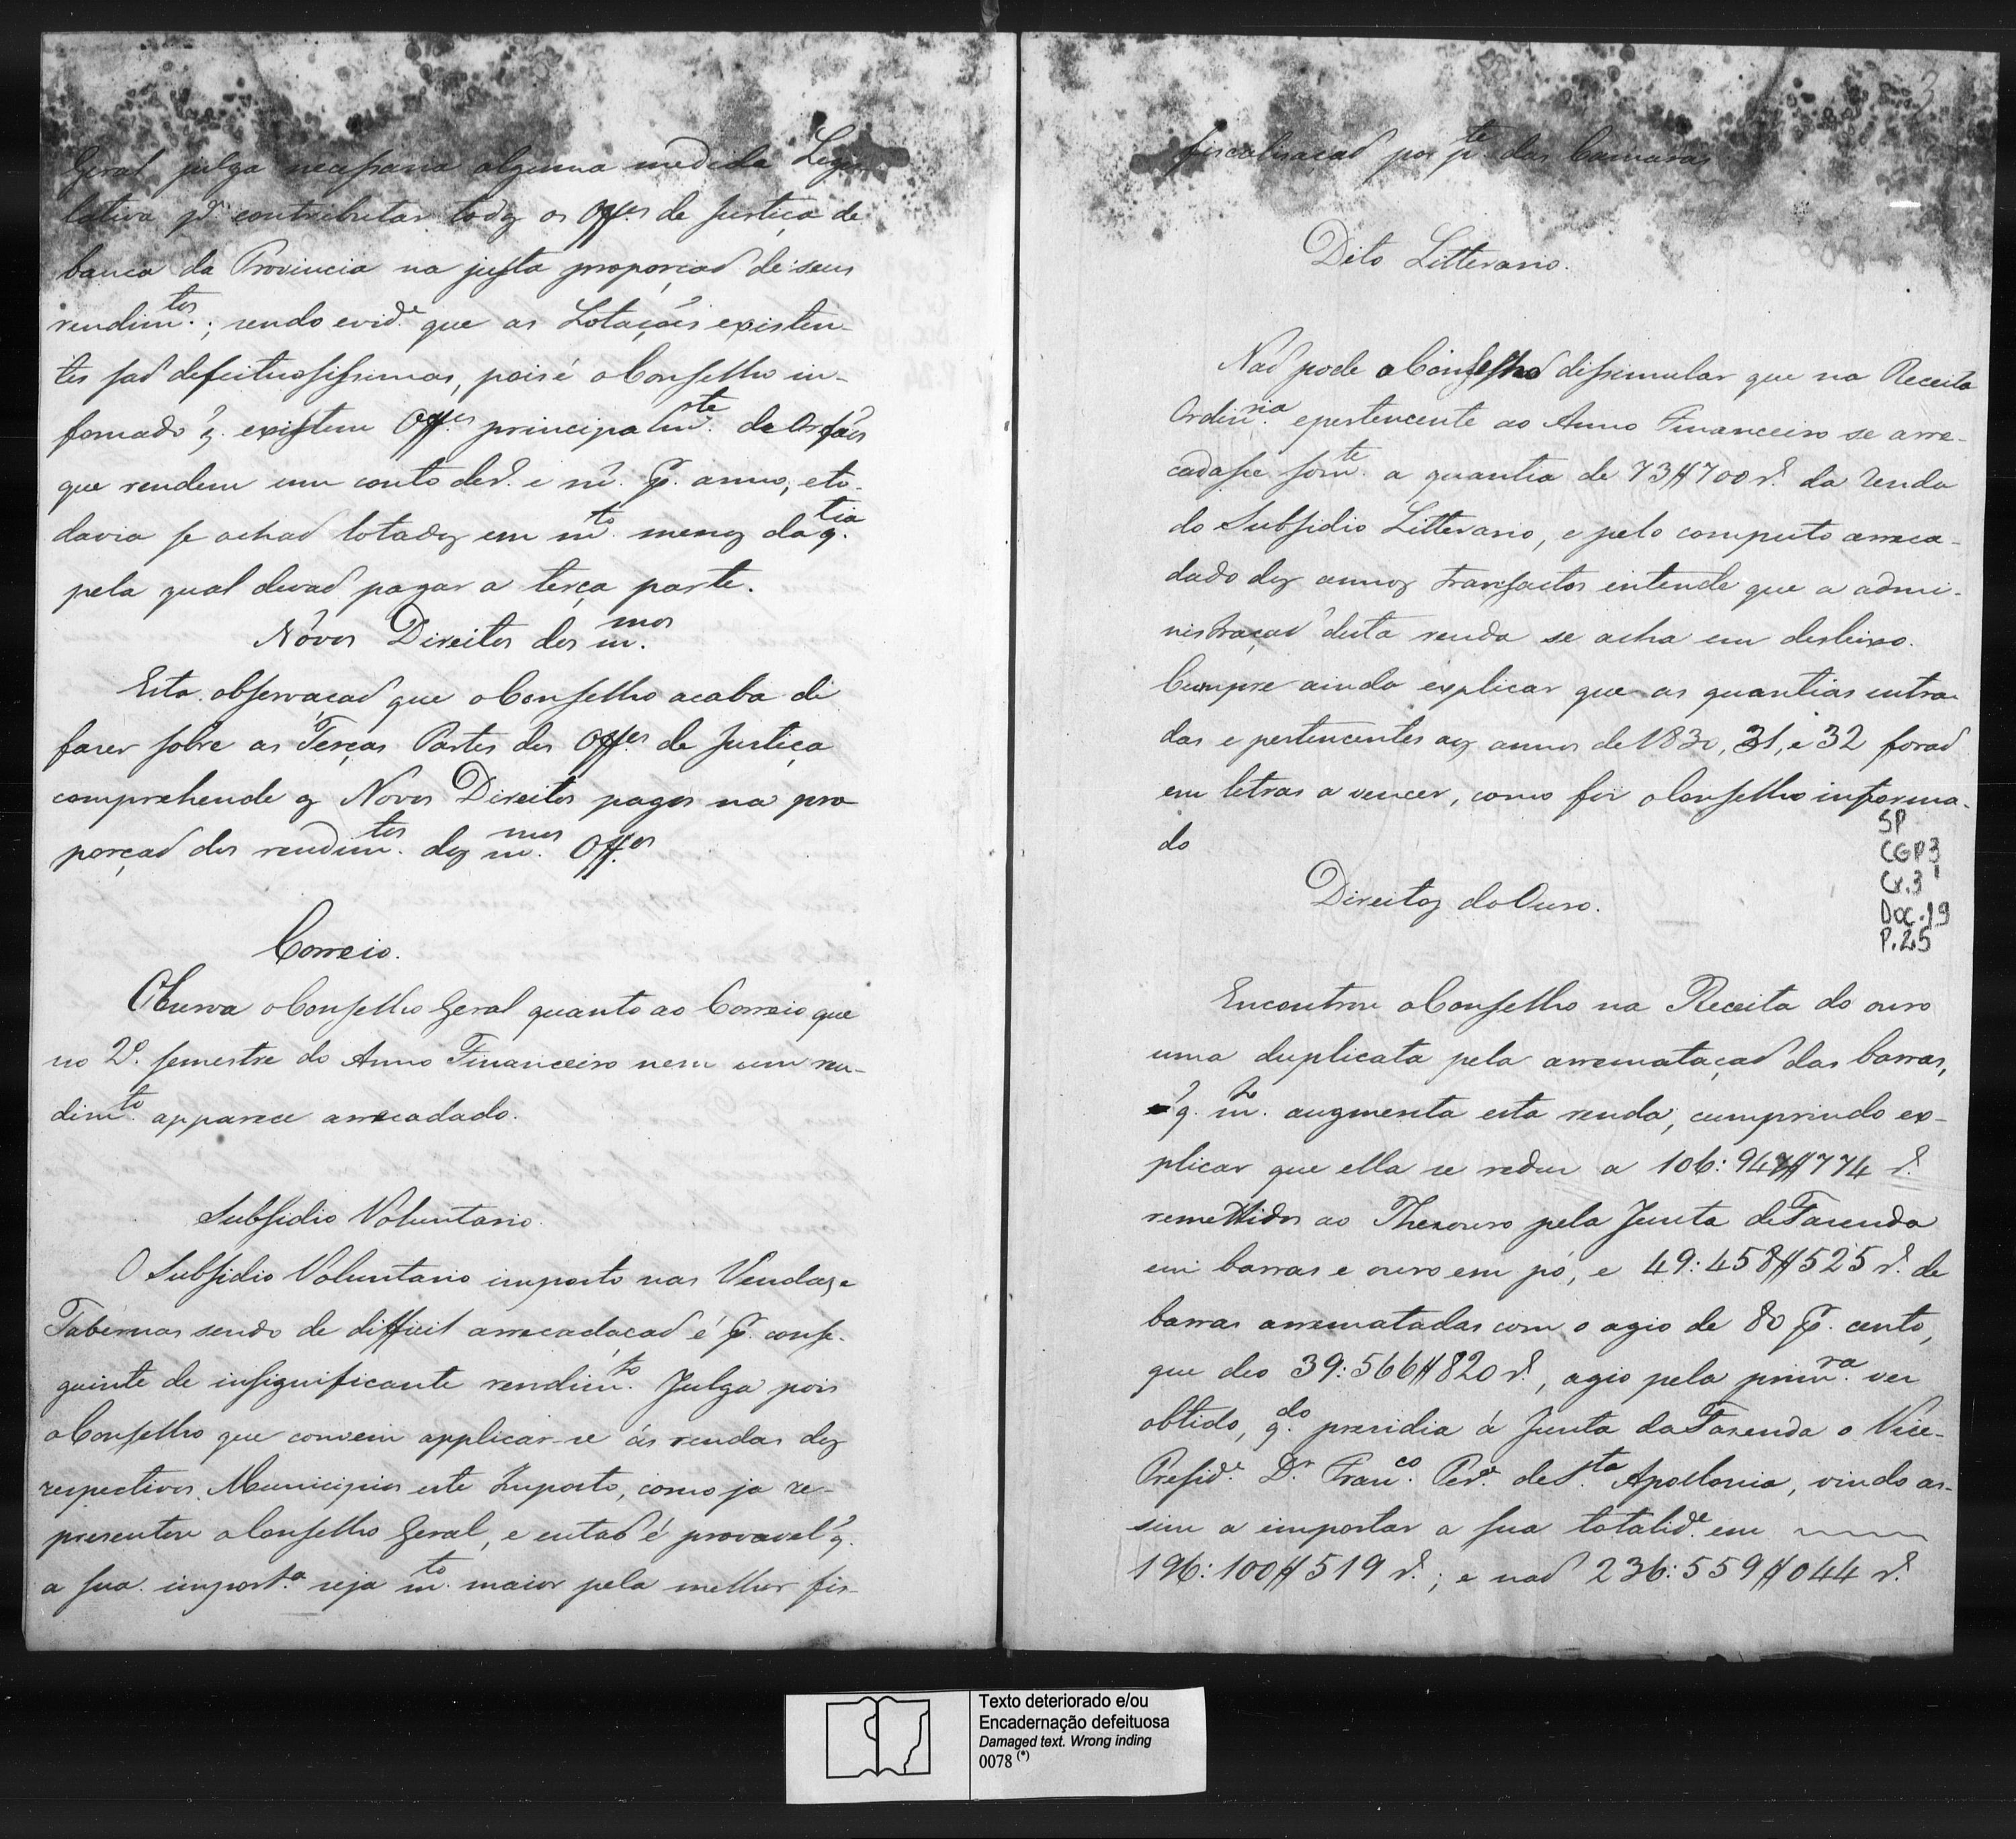 Geral julga necessaria alguma medida Legis-
lativa pª contributar todos os Offes de Justiça de
banca da Provincia na justa proporçaõ de seus
rendimtos.; sendo evide que as Lotações existen-
tes saõ defeituosissimas, pois é o Conselho in-
formado q. existem Offes principalmte de Orfãos
que rendem um conto de r.s e m.s p. anno, eto-
davia se achaõ lotados em mto. menos da q.tia
pela qual devaõ pagar a terça parte.
Nóvos Direitos dos m.mos
Esta observaçaõ que o Conselho acaba de
fazer sobre as Terças Partes dos Offes de Justiça
comprehende os Novos Direitos pagos na pro-
porçaõ dos rendimtos. dos m.mos Offos
Correio.
Observa o Conselho Geral quanto ao Correio que
no 2º. semestre do Anno Financeiro nem um ren-
dimto. apparece arrecadado.
Subsidio Voluntario.
O Subsidio Voluntario imposto nas Vendas, e
Tabernas sendo de difficil arrecadaçaõ é p. conse-
guinte de insignificante rendimto. Julga pois
o Conselho que convem applicar-se ás rendas dos
respectivos Municipios este Imposto, como ja re-
presentou o Conselho Geral, e entaõ é provavel q.
a sua import.a seja mto. maior pela melhor fis-
3
fiscalisaçaõ por pte das Camaras
Dito Litterario.
Naõ pode o Conselho dissimular que na Receita
Ordin.ria e pertencente ao Anno Financeiro se arre-
cadasse som.te a quantia de 73$700 r.s da renda
do Subsidio Litterario, e pelo computo arreca-
dado dos annos transactos entende que a admi-
nistraçaõ desta renda se acha em desleixo.
Cumpre ainda explicar que as quantias entra-
das e pertencentes aos annos de 1830, 31, e 32 foraõ
em letras a vencer, como foi o Conselho informa-
do
SP
CGP3
Cx.3
Doc.19
P.25
Direitos do Ouro.
Encontrou o Conselho na Receita do ouro
uma duplicata pela arremataçaõ das barras,
q. m.o augmenta esta renda; cumprindo ex-
plicar que ella se reduz a 106:947$774 r.s
remettidos ao Thesouro pela Junta de Fazenda
em barras e ouro em pó, e 49:458$525 r.s de
barras arrematadas com o agio de 80 p. cento,
que deo 39:566$820 r.s, agio pela prim.ra vez
obtido, q.do presidia á Junta da Fazenda o Vice-
Preside. Dr. Franco. Pera. de Sta. Apollonia, vindo as-
sim a importar a sua totalide. em
196:100$519 r.s; e naõ 236:559$044 r.s
Texto deteriorado e/ou
Encadernação defeituosa
Damaged text. Wrong inding
0078 (*)